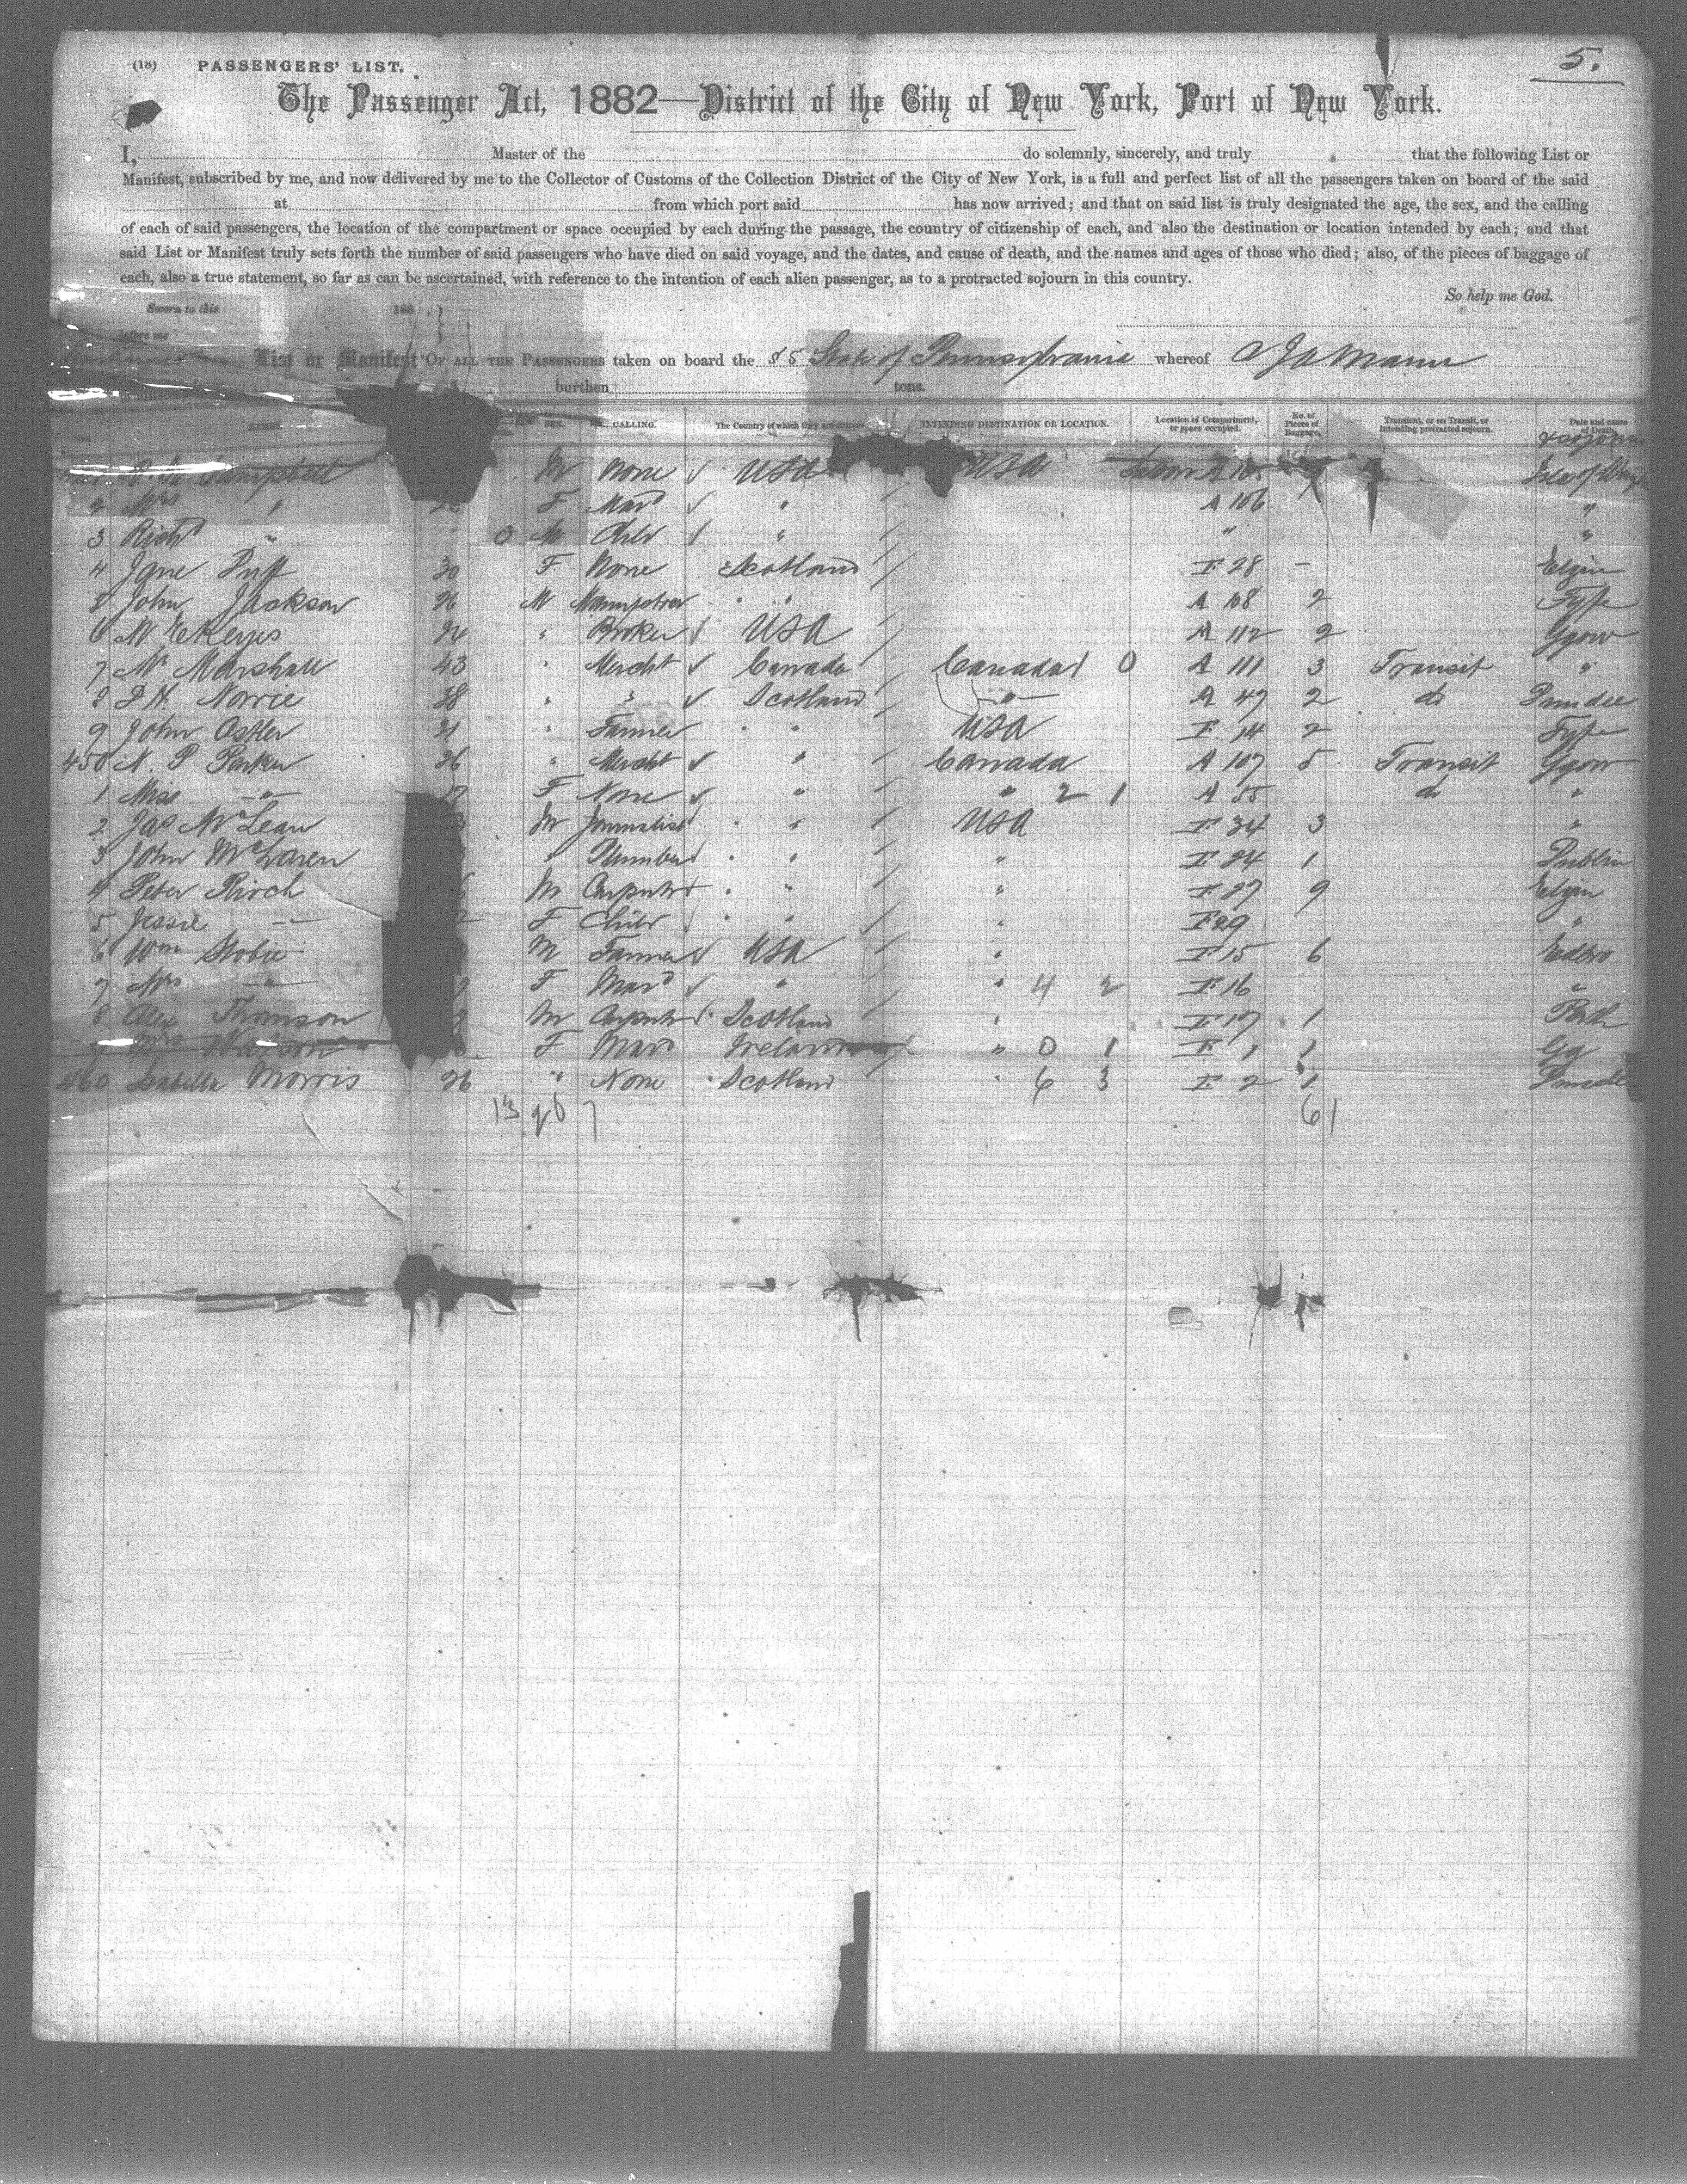 (18) PASSENGERS' LIST.
5.
The Passenger Act, 1882—District of the City of New York, Port of New York.
I, Master of the do solemnly, sincerely, and truly that the following List or
Manifest, subscribed by me, and now delivered by me to the Collector of Customs of the Collection District of the City of New York, is a full and perfect list of all the passengers taken on board of the said
at from which port said has now arrived; and that on said list is truly designated the age, the sex, and the calling
of each of said passengers, the location of the compartment or space occupied by each during the passage, the country of citizenship of each, and also the destination or location intended by each; and that
said List or Manifest truly sets forth the number of said passengers who have died on said voyage, and the dates, and cause of death, and the names and ages of those who died; also, of the pieces of baggage of
each, also a true statement, so far as can be ascertained, with reference to the intention of each alien passenger, as to a protracted sojourn in this country.
So help me God.
Sworn to this 188
before me
List or Manifest OF ALL THE PASSENGERS taken on board the SS State of Pennsylvania whereof Mann
burthen tons.
NAMES. SEX. CALLING. The Country of which they are citizens. INTENDING DESTINATION OR LOCATION. Location of Compartment, or space occupied. No. of Pieces of Baggage. Transient, or on Transit, or intending protracted sojourn. Date and cause of Death.
Campbell M None USA USA
2 Mrs " F Mard " A 106 "
3 Richd " 0 M Child " " "
4 Jane Duff 30 F None Scotland I 28 - Elgin
5 John Jackson 26 M " A 108 2 Fyfe
6 24 " Broker USA A 112 2 Ggow
7 Marshall 43 " Mercht Canada Canada 1 0 A 111 3 Transit "
8 Norrie 38 " " Scotland " A 47 2 do Dundee
9 John 21 " Farmer " USA I 14 2 Fyfe
450 N. P Parker 26 " Mercht " Canada A 107 5 Transit Ggow
1 Miss " F None " " 2 1 A 55 do "
2 Jas McLean M Journalist " USA I 34 3 "
3 John McLaren " Plumber " " I 24 1 Dublin
4 Peter M Carpenter " " I 27 9 Elgin
5 Jessie " F Child " " I 29 "
6 Wm Stobie M Farmer USA " I 15 6 Edbro
7 Mrs " F Mard " " 4 2 I 16 "
8 Alex Thomson M Carpntr Scotland " I 17 1
9 Mrs F Mard Ireland " 0 1 I 1 1
460 Isabella Morris 26 " None Scotland " 6 3 I 2 1 Dundee
13 7 61